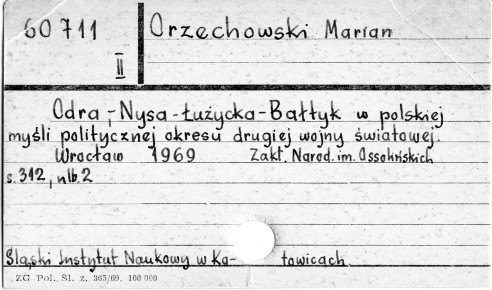 60 711 Orzechowski Marian
II
Odra,-Nysa-Łużycka-Bałtyk w polskiej
myśli politycznej okresu drugiej wojny światowej.
Wrocław 1969 Zakł. Narod. im. Ossolińskich
s. 312, nlb. 2
Śląski Instytut Naukowy w Ka- towicach.
ZG Pol., Śl. z. 365/69. 100 000